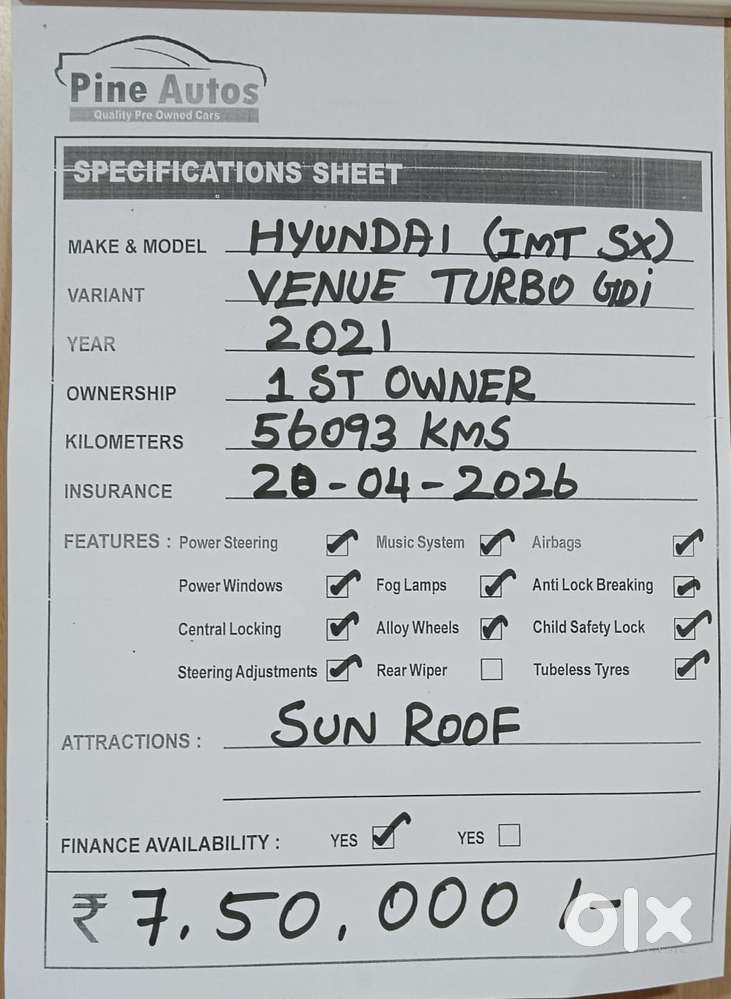 Pine Autos
Quality Pre Owned Cars
SPECIFICATIONS SHEET
MAKE & MODEL HYUNDAI (IMT SX)
VARIANT VENUE TURBO GDi
YEAR 2021
OWNERSHIP 1 ST OWNER
KILOMETERS 56093 KMS
INSURANCE 20-04-2026
FEATURES : Power Steering ✓ Music System ✓ Airbags ✓
Power Windows ✓ Fog Lamps ✓ Anti Lock Breaking ✓
Central Locking ✓ Alloy Wheels ✓ Child Safety Lock ✓
Steering Adjustments ✓ Rear Wiper ☐ Tubeless Tyres ✓
ATTRACTIONS : SUN ROOF
FINANCE AVAILABILITY : YES ✓ YES ☐
₹ 7,50,000/-
olx